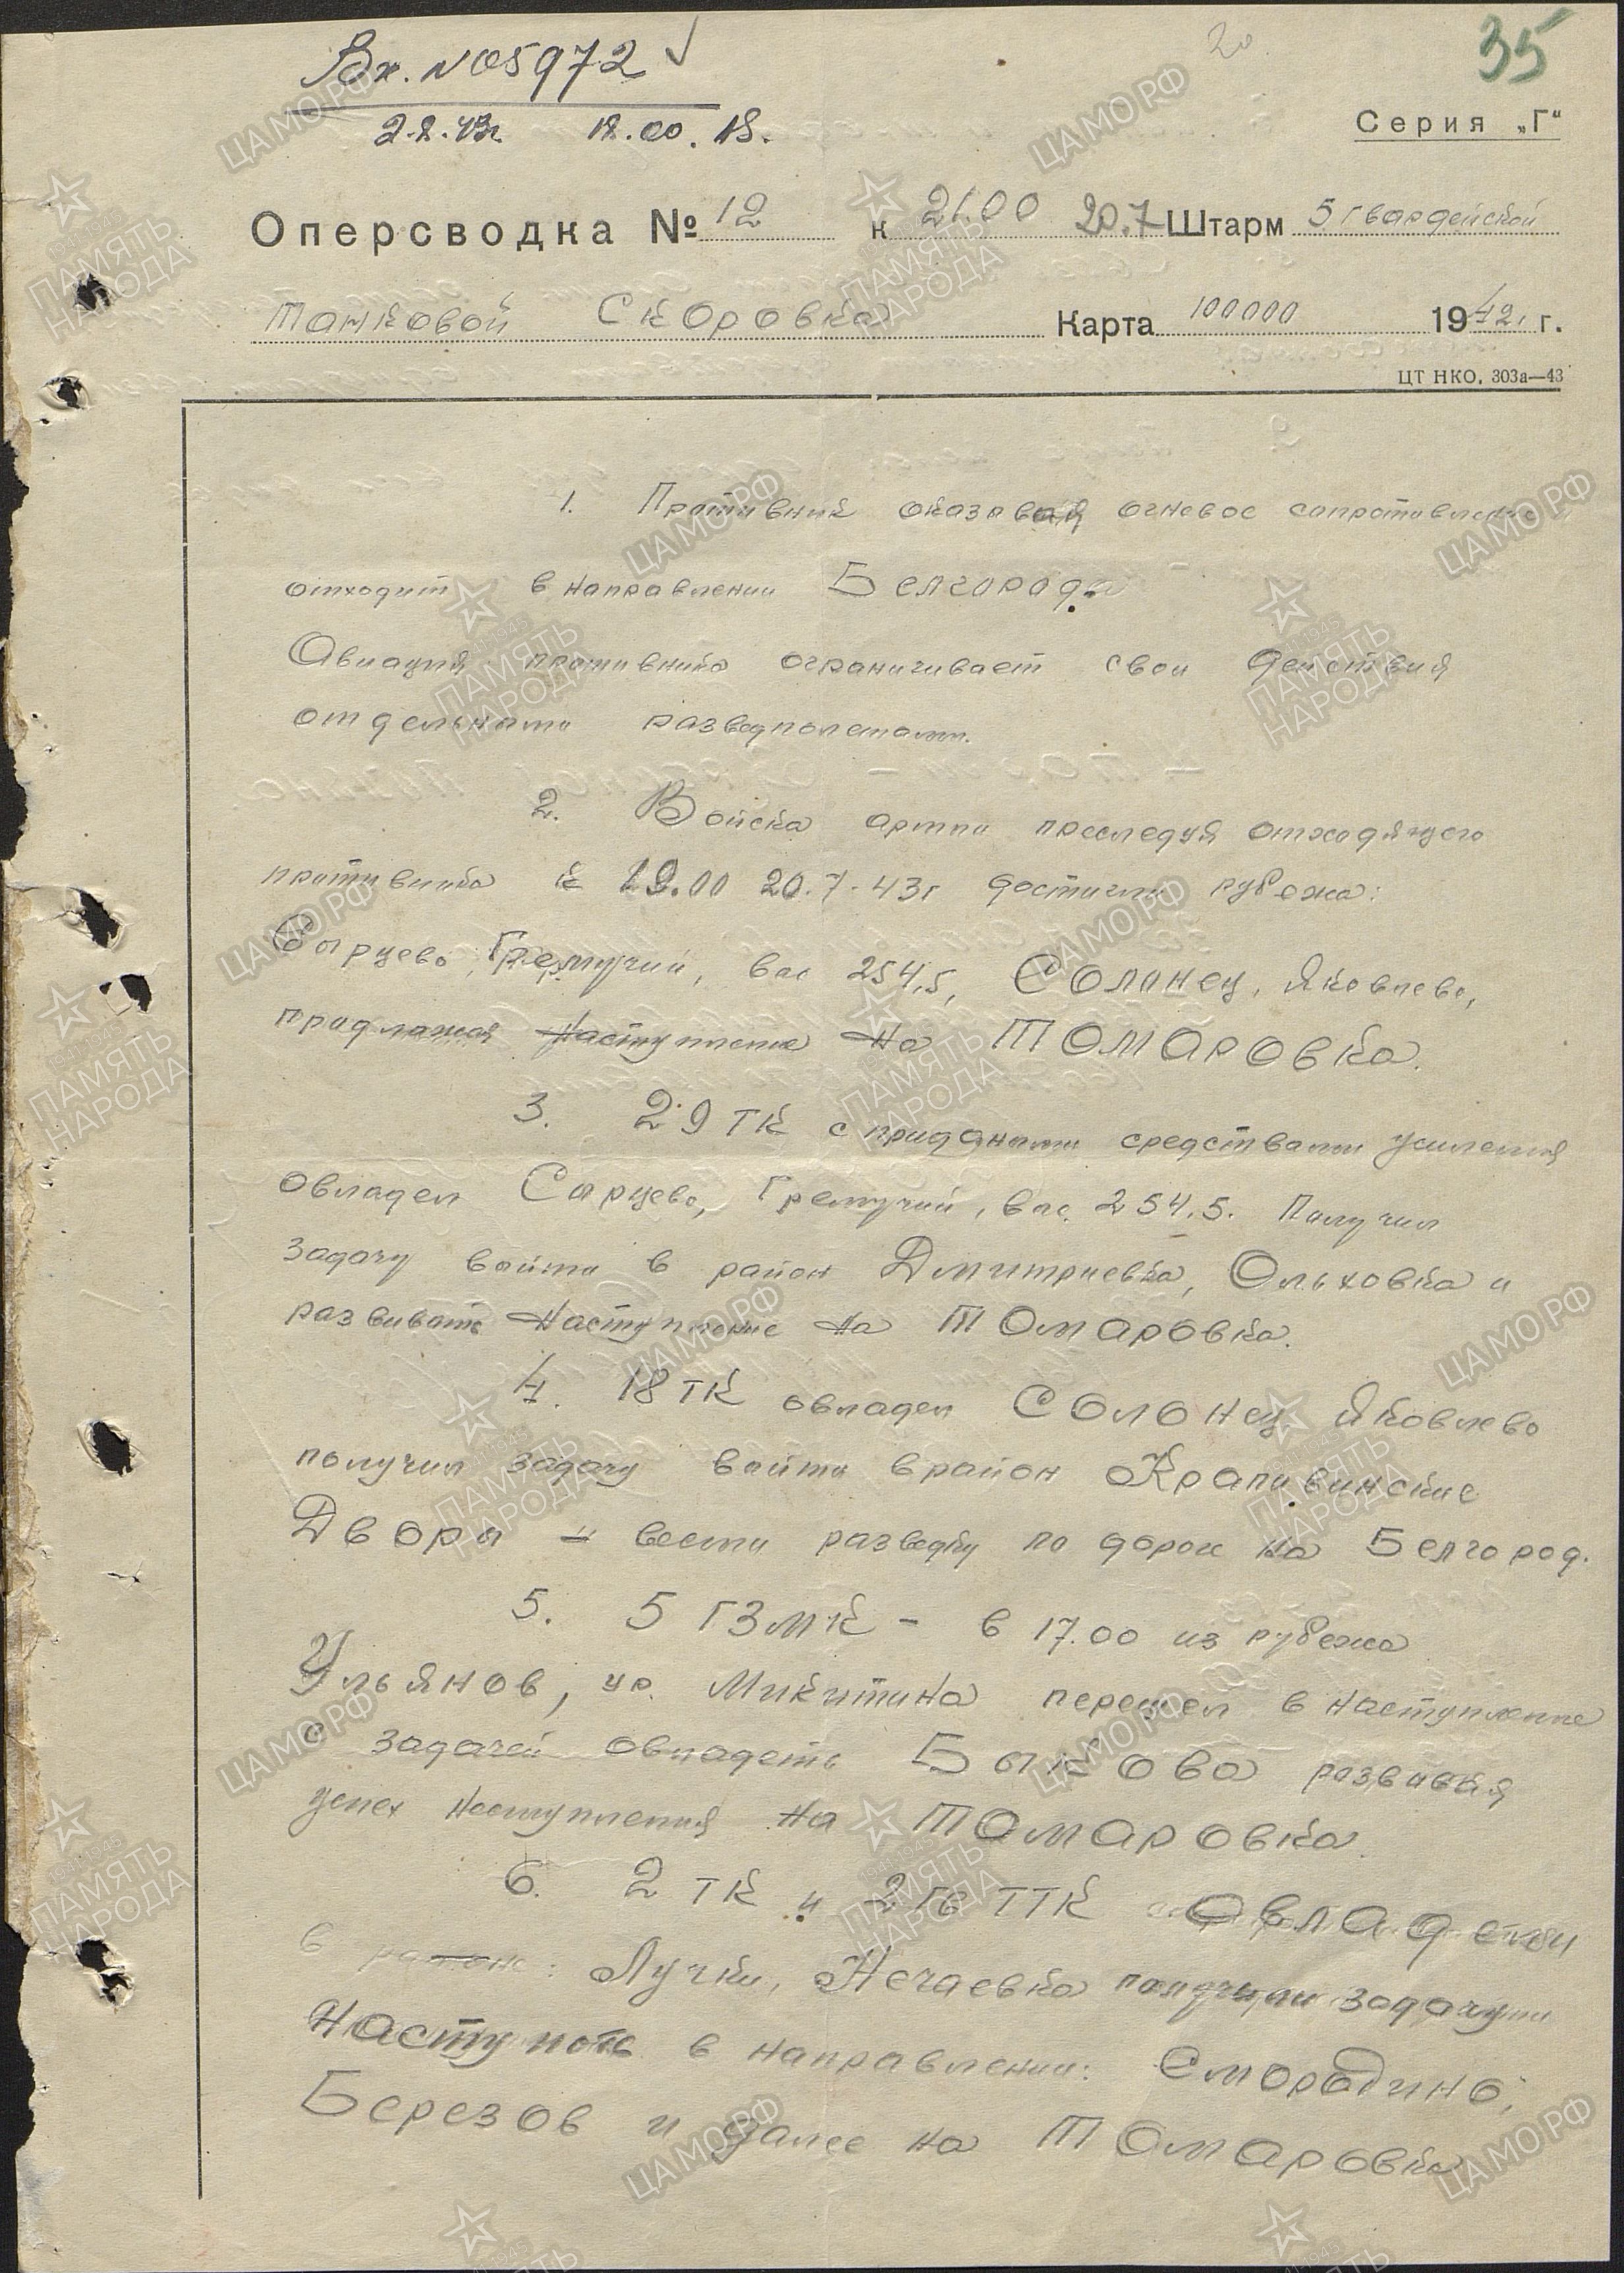 20
35
Вх. N 05972
2.8.43г 18.00.
Серия „Г“
Оперсводка № 12 к 21.00 20.7 Штарм 5 гвардейской
танковой Скоровка Карта 100000 1942 г.
ЦТ НКО. 303а—43
1. Противник оказывая огневое сопротивление
отходит в направлении Белгорода
Авиация противника ограничивает свои действия
отдельными разведполетами.
2. Войска армии преследуя отходящего
противника к 19.00 20.7.43г достигли рубежа:
Сырцево, Гремучий, выс 254,5, Солонец, Яковлево,
продолжая наступление на Томаровка.
3. 29 ТК с приданными средствами усиления
овладел Сырцево, Гремучий, выс. 254.5. Получил
задачу выйти в район Дмитриевка, Ольховка и
развивать наступление на Томаровка.
4. 18 ТК овладел Солонец, Яковлево
получил задачу выйти в район Крапивинские
Дворы и вести разведку по дороге на Белгород.
5. 5 ГЗМК - в 17.00 из рубежа
Ульянов, ур. Микитина перешел в наступление
с задачей овладеть Быкова развивая
успех наступления на Томаровка.
6. 2 ТК и 2 Гв ТТК овладели
в районе: Лучки, Нечаевка получили задачу
наступать в направлении: Смородино,
Березов и далее на Томаровка